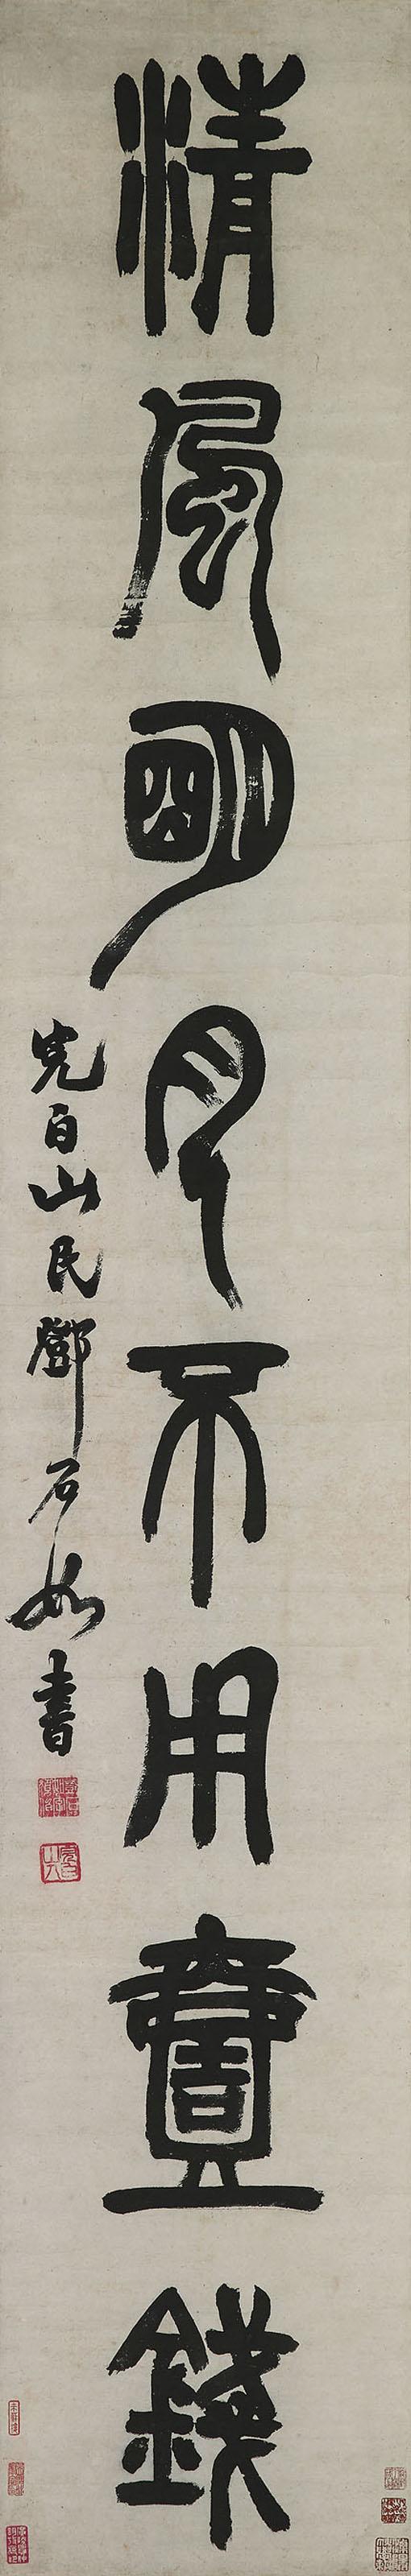 清風朙月不用壹錢
完白山民鄧石如書